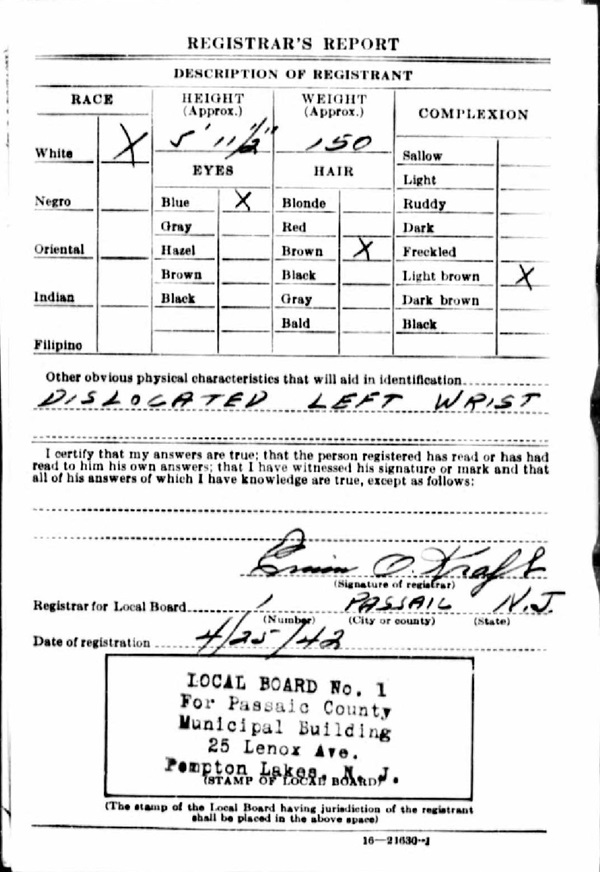 REGISTRAR'S REPORT
DESCRIPTION OF REGISTRANT
RACE
HEIGHT
(Approx.)
WEIGHT
(Approx.)
COMPLEXION
5' 11 1/2"
150
White X
EYES
HAIR
Sallow
Light
Negro
Blue X
Blonde
Ruddy
Gray
Red
Dark
Oriental
Hazel
Brown X
Freckled
Brown
Black
Light brown X
Indian
Black
Gray
Dark brown
Bald
Black
Filipino
Other obvious physical characteristics that will aid in identification
DISLOCATED LEFT WRIST
I certify that my answers are true; that the person registered has read or has had
read to him his own answers; that I have witnessed his signature or mark and that
all of his answers of which I have knowledge are true, except as follows:
O. Kraft
(Signature of registrar)
Registrar for Local Board 1 PASSAIC N.J.
(Number) (City or county) (State)
Date of registration 4/25/42
LOCAL BOARD No. 1
For Passaic County
Municipal Building
25 Lenox Ave.
Pompton Lakes, N. J.
(STAMP OF LOCAL BOARD)
(The stamp of the Local Board having jurisdiction of the registrant
shall be placed in the above space)
16—21630-1